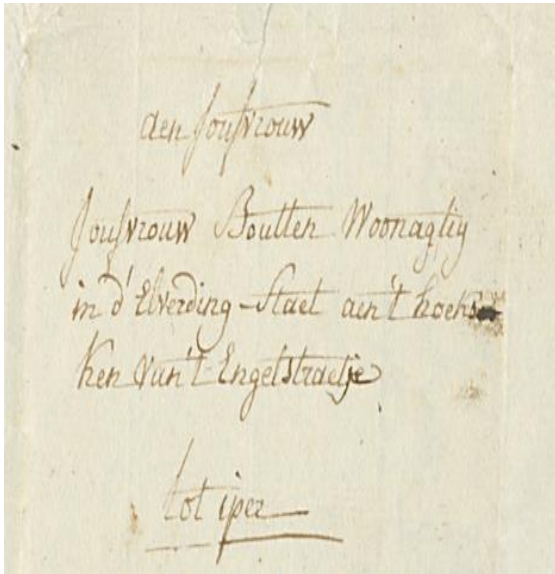 aen Joufvrouw
Joufvrouw Boutten Woonagtig
in d'Elverding-Staet aen't hoeks
ken van't Engelstraetje
tot iper